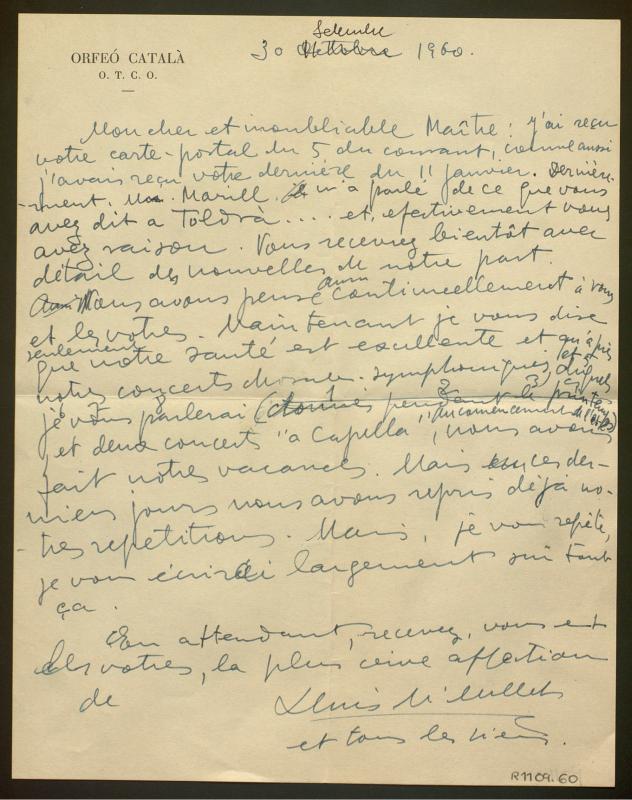 ORFEÓ CATALÀ
O. T. C. O.
Setembre
30 Octobre 1960.
Mon cher et inoubliable Maître: j'ai reçu
votre carte-postal du 5 du courant, comme aussi
j'avais reçu votre dernière du 11 janvier. Dernière-
ment, Marill m'a parlé de ce que vous
avez dit a Toldrà .... et, efectivement vous
avez raison. Vous recevrez bientôt avec
détail des nouvelles de notre part.
Nous avons pensé aussi continuellement à vous
et les votres. Maintenant je vous dise
seulement
que notre santé est excellente et qu'après
notres concerts symphoniques, et
je vous parlerai (pendant le printemps
au comencement de
et deux concerts "a Capella", nous avons
fait notres vacances. Mais ces der-
niers jours nous avons repris déjà no-
tres repetitions. Mais, je vous repète,
je vous écrirai largement sur tout
ça.
En attendant, recevez, vous et
les votres, la plus affection
de Lluis Mª Millet
et tous les siens.
R1109.60